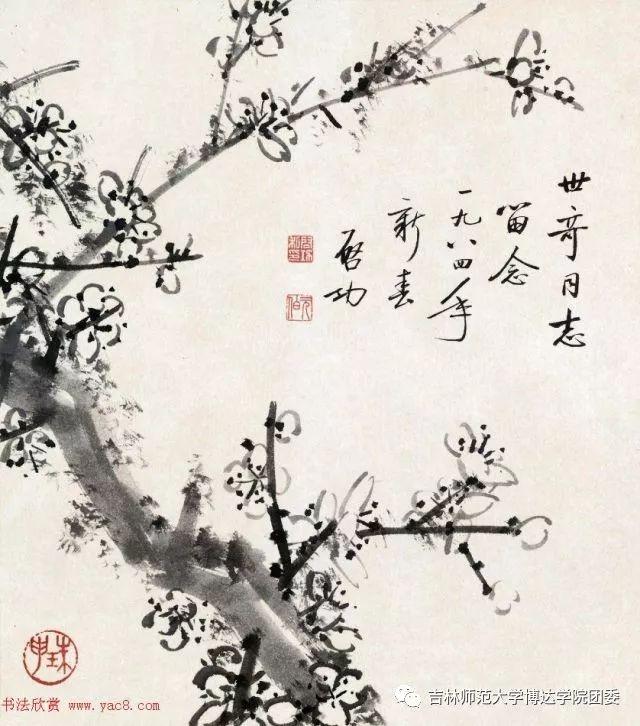 世奇同志
留念
一九八四年
新春
启功
元伯
书法欣赏 www.yac8.com
吉林师范大学博达学院团委